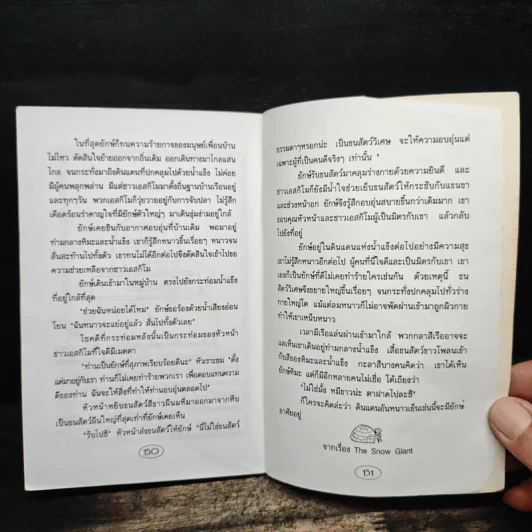 ในที่สุดยักษ์ก็ทนความร้ายกาจของมนุษย์เพื่อนบ้าน
ไม่ไหว ตัดสินใจย้ายออกจากถิ่นเดิม ออกเดินทางมาไกลแสน
ไกล จนกระทั่งมาถึงดินแดนที่ปกคลุมไปด้วยน้ำแข็ง ไม่ค่อย
มีผู้คนพลุกพล่าน มีแต่ชาวเอสกิโมมาตั้งถิ่นฐานบ้านเรือนอยู่
และทุกๆวัน พวกเอสกิโมก็วุ่นวายอยู่กับการจับปลา ไม่รู้สึก
เดือดร้อนรำคาญใจที่มียักษ์ตัวใหญ่ๆ มาเดินงุ่มง่ามอยู่ใกล้
ยักษ์เคยชินกับอากาศอบอุ่นที่บ้านเดิม พอมาอยู่
ท่ามกลางหิมะและน้ำแข็ง เขาก็รู้สึกหนาวขึ้นเรื่อยๆ หนาวจน
สั่นสะท้านไปทั้งตัว เขาทนไม่ได้อีกต่อไปจึงตัดสินใจเข้าไปขอ
ความช่วยเหลือจากชาวเอสกิโม
ยักษ์เดินเข้ามาในหมู่บ้าน ตรงไปยังกระท่อมน้ำแข็ง
ที่อยู่ใกล้ที่สุด
"ช่วยฉันหน่อยได้ไหม" ยักษ์ขอร้องด้วยน้ำเสียงอ่อน
โยน "ฉันหนาวจะแย่อยู่แล้ว สั่นไปทั้งตัวเลย"
โชคดีที่กระท่อมหลังนั้นเป็นกระท่อมของหัวหน้า
ชาวเอสกิโมที่ใจดีมีเมตตา
"ท่านเป็นยักษ์ที่สุภาพเรียบร้อยดีนะ" หัวเราะชม "ตั้ง
แต่มาอยู่กับเรา ท่านก็ไม่เคยทำร้ายพวกเรา เพื่อตอบแทนความ
ดีของท่าน ฉันจะให้สิ่งที่ทำให้ท่านอบอุ่นตลอดไป"
หัวหน้าหยิบขนสัตว์สีขาวผืนมหึมาออกมาจากหีบ
เป็นขนสัตว์ผืนใหญ่ที่สุดเท่าที่ยักษ์เคยเห็น
"รับไปซิ" หัวหน้าส่งขนสัตว์ให้ยักษ์ "นี่ไม่ใช่ขนสัตว์
150
ธรรมดาๆหรอกน่ะ เป็นขนสัตว์วิเศษ จะให้ความอบอุ่นแต่
เฉพาะผู้ที่เป็นคนดีจริงๆ เท่านั้น "
ยักษ์รับขนสัตว์มาคลุมร่างกายด้วยความยินดี และ
ชาวเอสกิโมก็ยังมีน้ำใจช่วยเย็บขนสัตว์ให้กระชับกับแขนขา
และช่วงหน้าอก ยักษ์จึงรู้สึกอบอุ่นสบายขึ้นกว่าเดิมมาก เขา
ขอบคุณหัวหน้าและชาวเอสกิโมผู้เป็นมิตรกับเขา แล้วกลับ
ไปยังที่อยู่
ยักษ์อยู่ในดินแดนแห่งน้ำแข็งต่อไปอย่างมีความสุข
เขาไม่รู้สึกหนาวอีกต่อไป ผู้คนที่นี่ใจดีและเป็นมิตรกับเขา เขา
เองก็เป็นยักษ์ที่ดีไม่เคยทำร้ายใครเช่นกัน ด้วยเหตุนี้ ขน
สัตว์วิเศษจึงขยายใหญ่ขึ้นเรื่อยๆ จนกระทั่งปกคลุมไปทั่วร่าง
กายใหญ่โต แม้แต่ลมหนาวก็ไม่อาจพัดผ่านเข้ามาถูกผิวกาย
ทำให้เขาเหน็บหนาว
เวลามีเรือแล่นผ่านเข้ามาใกล้ พวกกลาสีเรืออาจจะ
แลเห็นเขาเดินอยู่ท่ามกลางน้ำแข็ง เสื้อขนสัตว์ขาวโพลนเข้า
กับสีของหิมะและน้ำแข็ง กะลาสีบางคนคิดว่า เขาได้เห็น
ยักษ์หิมะ แต่ก็มีอีกหลายคนไม่เชื่อ โต้เถียงว่า
"ไม่ใช่มั้ง หมีขาวน่ะ ตาฝาดไปละซิ"
ก็ใครจะคิดล่ะว่า ดินแดนอันหนาวเย็นเช่นนี้จะมียักษ์
อาศัยอยู่
จากเรื่อง The Snow Giant
151